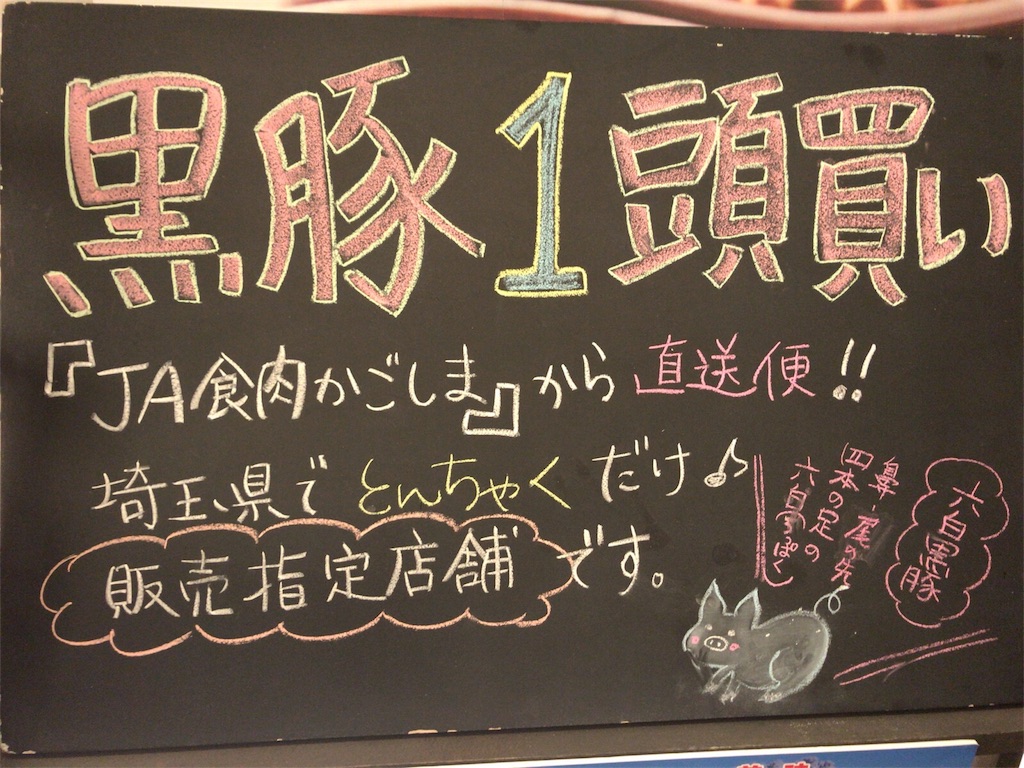 黒豚1頭買い
『JA食肉かごしま』から直送便!!
埼玉県でとんちゃくだけ♪
販売指定店舗です。
六白黒豚
鼻・尾の先
四本の足の
六白